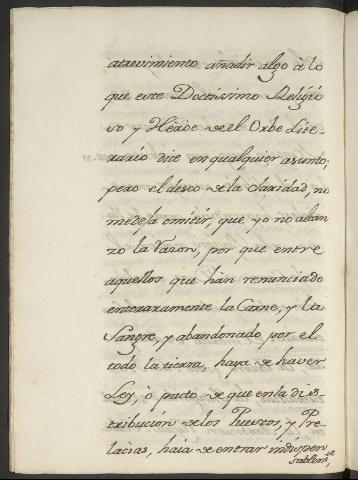 atrevimiento añadir algo à lo
que este Doctissimo Religio
so y Héroe de el Orbe Lite-
rario dice en qualquier asunto;
pero el deseo de la Claridad, no
me deja omitir, que yo no alcan
zo la razon, por que entre
aquellos que hán renunciado
enteraramente la Carne, y la
Sangre, y abandonado por el
todo la tierra, haya de haver
Ley, ò pacto de que en la dis-
tribución de los Puestos, y Pre-
lacias, haia de entrar indispen
sablemte,